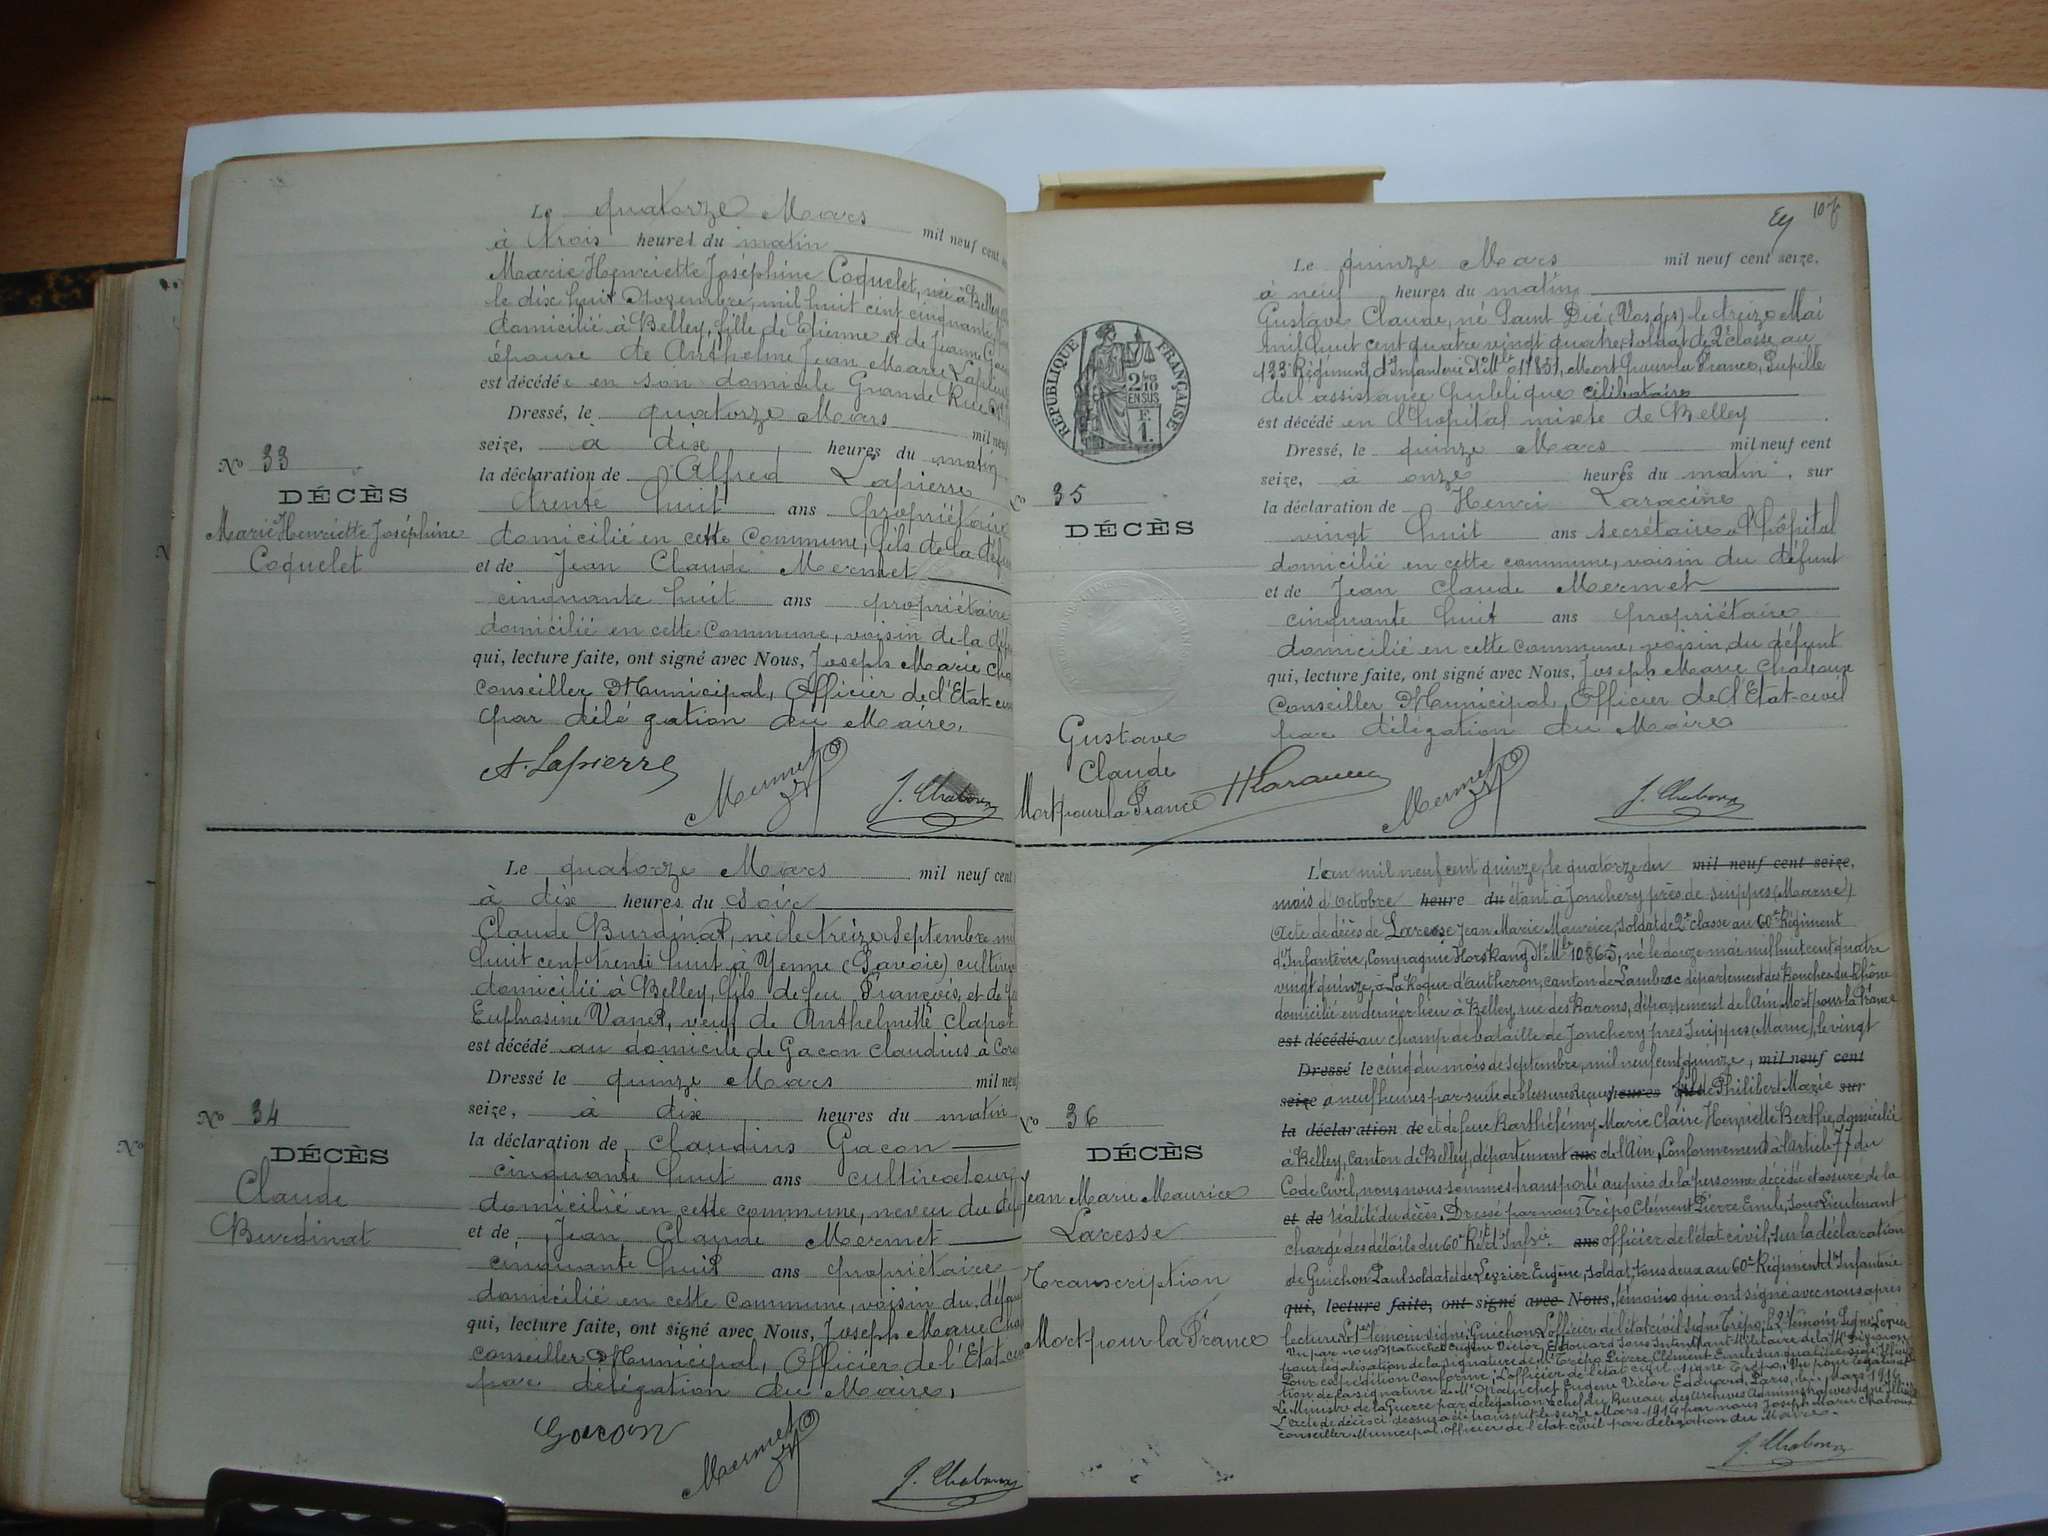 Le quatorze Mars mil neuf cent
à trois heures du matin
Marie Henriette Joséphine Coquelet, née à Belley
le dix huit Novembre mil huit cent cinquante
domicilié à Belley, fille de Etienne et de Jeanne
épouse de Anthelme Jean Marie
est décédée en son domicile Grande Rue
Dressé, le quatorze Mars mil neuf
seize, à dix heures du matin
la déclaration de Alfred Lapierre
trente huit ans propriétaire
domicilié en cette Commune, fils de la
et de Jean Claude Mermet
cinquante huit ans propriétaire
domicilié en cette Commune, voisin de la
qui, lecture faite, ont signé avec Nous, Joseph Marie
Conseiller Municipal, Officier de l'Etat-
par délégation du Maire.
A. Lapierre Mermet J. Chaboux
No 33
DÉCÈS
Marie Henriette Joséphine
Coquelet
Le quatorze Mars mil neuf cent
à dix heures du soir
Claude Burdinat, né le treize Septembre mil
huit cent trente huit à Yenne (Savoie)
domicilié à Belley, fils de feu François, et de
Euphrasine Vanet, veuf de Anthelmette Clapot
est décédé au domicile de Gacon Claudius à
Dressé le quinze Mars mil neuf
seize, à dix heures du matin
la déclaration de Claudius Gacon
cinquante huit ans cultivateur
domicilié en cette commune, neveu du
et de Jean Claude Mermet
cinquante huit ans propriétaire
domicilié en cette commune, voisin du
qui, lecture faite, ont signé avec Nous, Joseph Marie
conseiller Municipal, Officier de l'Etat-
par délégation du Maire,
Gacon Mermet J. Chaboux
No 34
DÉCÈS
Claude
Burdinat
Le quinze Mars mil neuf cent seize,
à neuf heures du matin
Gustave Claude, né Saint Dié (Vosges) le treize Mai
mil huit cent quatre vingt quatre soldat de 2e classe au
133e Régiment d'Infanterie No Mle 011851, Mort pour la France, Pupille
de l'assistance publique célibataire
est décédé en l'hôpital mixte de Belley
Dressé, le quinze Mars mil neuf cent
seize, à onze heures du matin, sur
la déclaration de Henri Laracine
vingt huit ans secrétaire d'hôpital
domicilié en cette commune, voisin du défunt
et de Jean Claude Mermet
cinquante huit ans propriétaire
domicilié en cette commune, voisin du défunt
qui, lecture faite, ont signé avec Nous, Joseph Marie Chaboux
Conseiller Municipal, Officier de l'Etat-civil
par délégation du Maire
RÉPUBLIQUE FRANÇAISE
2/10
EN SUS
F.
1.
35
DÉCÈS
Gustave
Claude
Mort pour la France
H Laracine Mermet J. Chaboux
L'an mil neuf cent quinze, le quatorze du mil neuf cent seize,
mois d'Octobre heure du étant à Jonchery près de Suippes (Marne)
Acte de décès de Laresse Jean Marie Maurice, soldat de 2e classe au 60e Régiment
d'Infanterie, Compagnie Hors Rang No Mle 10865, né le douze mai mil huit cent quatre
vingt quinze, à La Roque d'antheron, canton de Lambesc département des Bouches du Rhône
domicilié en dernier lieu à Belley, rue des Barons, département de l'Ain Mort pour la France
est décédé au champ de bataille de Jonchery près Suippes (Marne), le vingt
Dressé le cinq du mois de Septembre, mil neuf cent quinze, mil neuf cent
seize à neuf heures par suite de blessures reçues heures fils de Philibert Marie sur
la déclaration de et de feue Barthélémy Marie Claire Henriette Berthe, domicilié
à Belley, canton de Belley, département ans de l'Ain, Conformément à l'article 77 du
Code Civil, nous nous sommes transporté auprès de la personne décédée et assuré de la
et de réalité du décès, Dressé par nous Trépo Clément Pierre Emile, Sous Lieutenant
chargé des détails du 60e Rét d'Infie ans officier de l'état civil, sur la déclaration
de Guichon Paul soldat et de Levrier Eugène, soldat, tous deux au 60e Régiment d'Infanterie
qui, lecture faite, ont signé avec Nous, témoins qui ont signé avec nous après
lecture. Le 1er témoin signé Guichon, L'officier de l'état civil signé Trépo, Le 2e témoin Signé Levrier
Vu par nous Eugène Victor Edouard Sous Intendant Militaire de la Division
pour légalisation de la signature de Mr Trépo Pierre Clément Emile sus qualifié
Pour expédition conforme, L'officier de l'état civil signé Trépo, Vu pour légalisa
tion de la signature de Mr Eugène Victor Edouard, Paris, le Mars 1916
Le Ministre de la Guerre par délégation Le chef du Bureau des Archives Administratives
L'acte de décès ci dessus a été transcrit le seize Mars 1916 par nous Joseph Marie Chaboux
conseiller Municipal, officier de l'état-civil par délégation du Maire.
J. Chaboux
No 36
DÉCÈS
Jean Marie Maurice
Laresse
Transcription
Mort pour la France